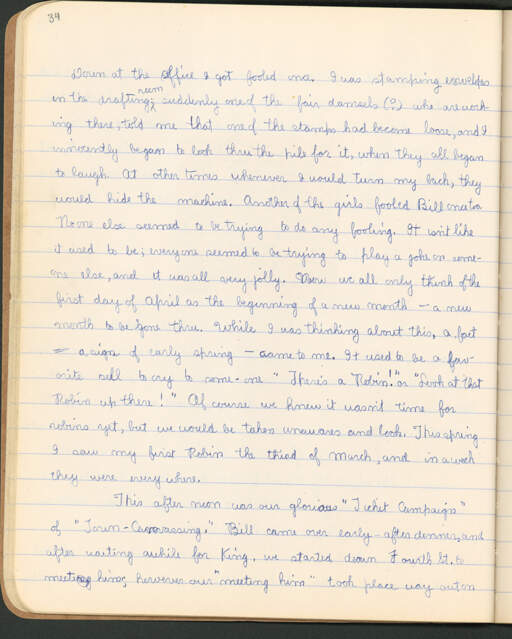 34
Down at the office I got fooled once. I was stamping envelopes
in the drafting room; suddenly one of the "fair damsels (?) who are work-
ing there, told me that one of the stamps had become loose, and I
innocently began to look thru the pile for it, when they all began
to laugh. At other times whenever I would turn my back, they
would hide the machine. Another of the girls fooled Bill
No one else seemed to be trying to do any fooling. It isn't like
it used to be; everyone seemed to be trying to play a joke on some-
one else, and it was all very jolly. Now we all only think of the
first day of April as the beginning of a new month — a new
month to be gone thru. While I was thinking about this, a fact
— a sign of early spring — came to me. It used to be a favor-
ite sell to cry to some-one "There's a Robin!" or "Look at that
Robin up there!" Of course we knew it wasn't time for
robins yet, but we would be taken unawares and look. This spring
I saw my first Robin the third of March, and in a week
they were every where.
This after noon was our glorious "Ticket Campaign"
of "Town-Canvassing." Bill came over early after dinner, and
after waiting awhile for King, we started down Fourth St. to
meeting him; however our "meeting him" took place way out on